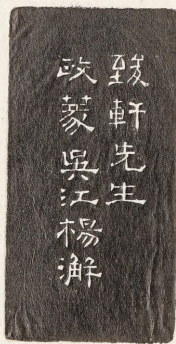 致軒先生
政篆吳江楊澥